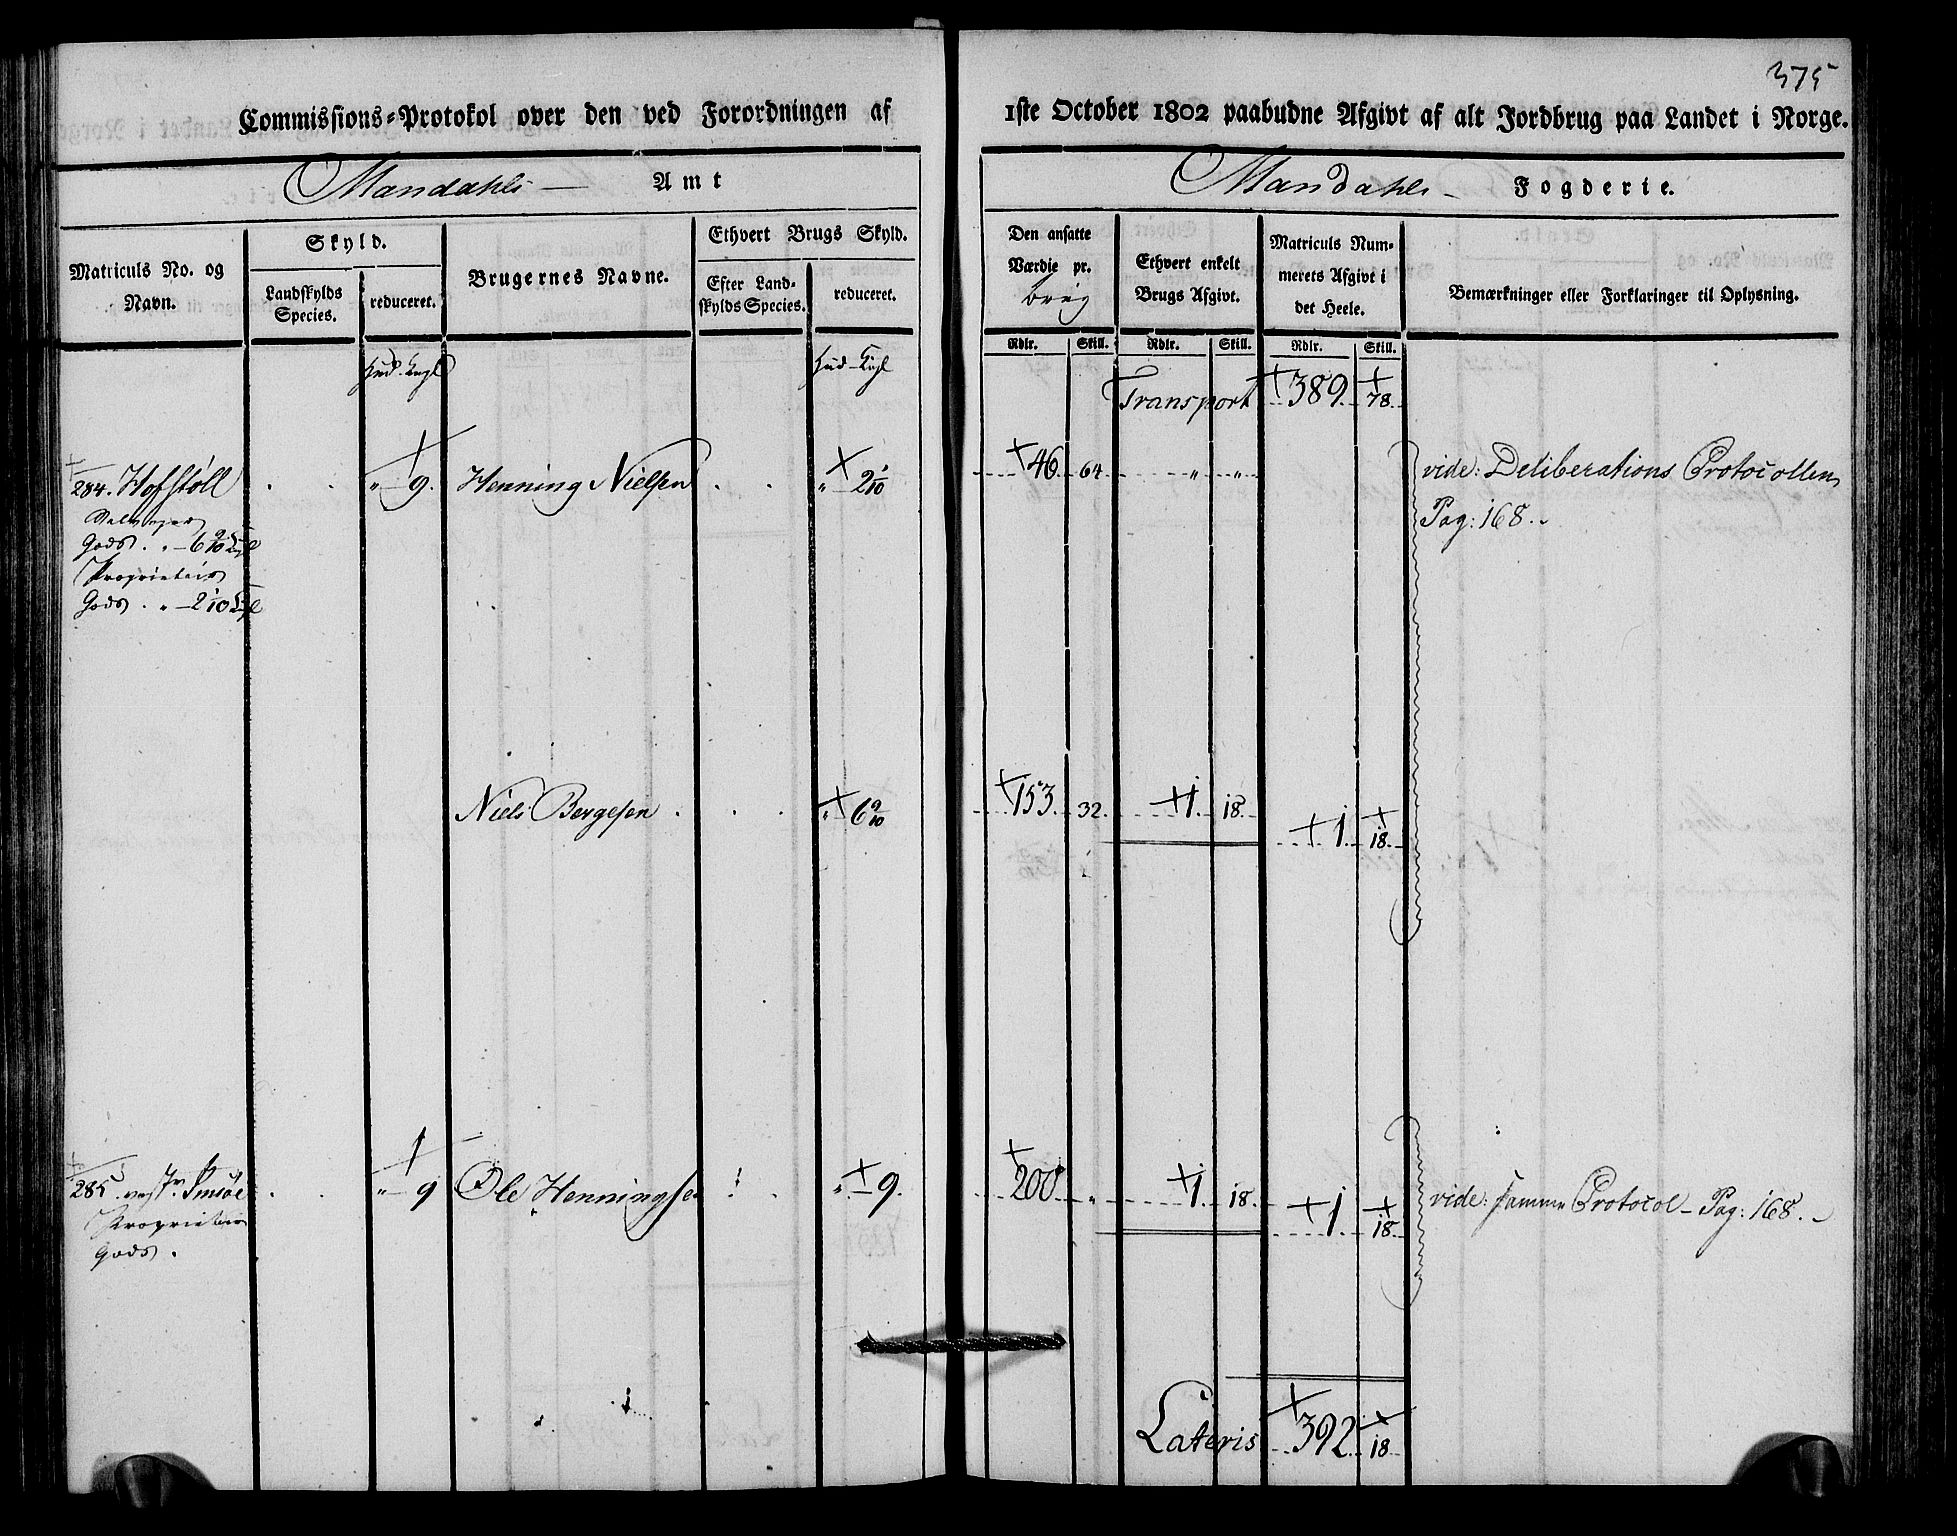 375
Commissions-Protokol over den ved Forordningen af 1ste October 1802 paabudne Afgivt af alt Jordbrug paa Landet i Norge.
Mandahls Amt
Mandahls Fogderie.
Matriculs No. og Navn.
Skyld.
Landskylds Species.
reduceret.
Brugernes Navne.
Ethvert Brugs Skyld.
Efter Landskylds Species.
reduceret.
Den ansatte Værdie pr. brug
Ethvert enkelt Brugs Afgivt.
Matriculs Nummerets Afgivt i det Heele.
Bemærkninger eller Forklaringer til Oplysning.
Rdlr. Skill. Rdlr. Skill. Rdlr. Skill.
Transport 389 78
284. Hofstöll " 9. Henning Nielsen " 2 1/10 46 64 " " vide: Deliberations Protocollen
Pag: 168.
Gods. " 6 9/10
Proprietair
Gods. " 2 1/10
Niels Bergesen " 6 9/10 153 32 1 18
1 18
285. " 9 Ole Henningsen " 9. 200 " 1 18 vide: samme Protocol Pag: 168.
1 18
Proprietair
Gods.
Lateris 392 18